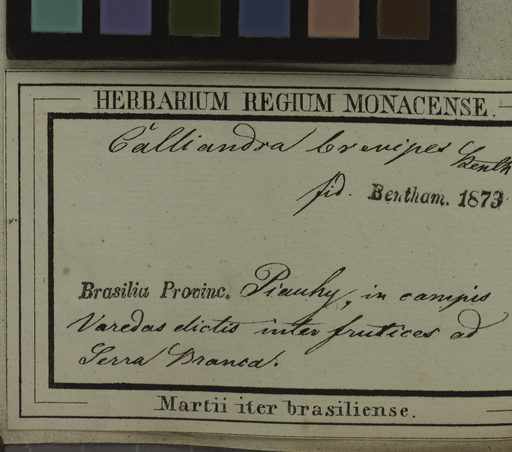 HERBARIUM REGIUM MONACENSE.
Calliandra brevipes Benth
fid. Bentham. 1873
Brasiliæ Provinc. Piauhy, in campis
Varedas dictis inter frutices ad
Serra Branca.
Martii iter brasiliense.